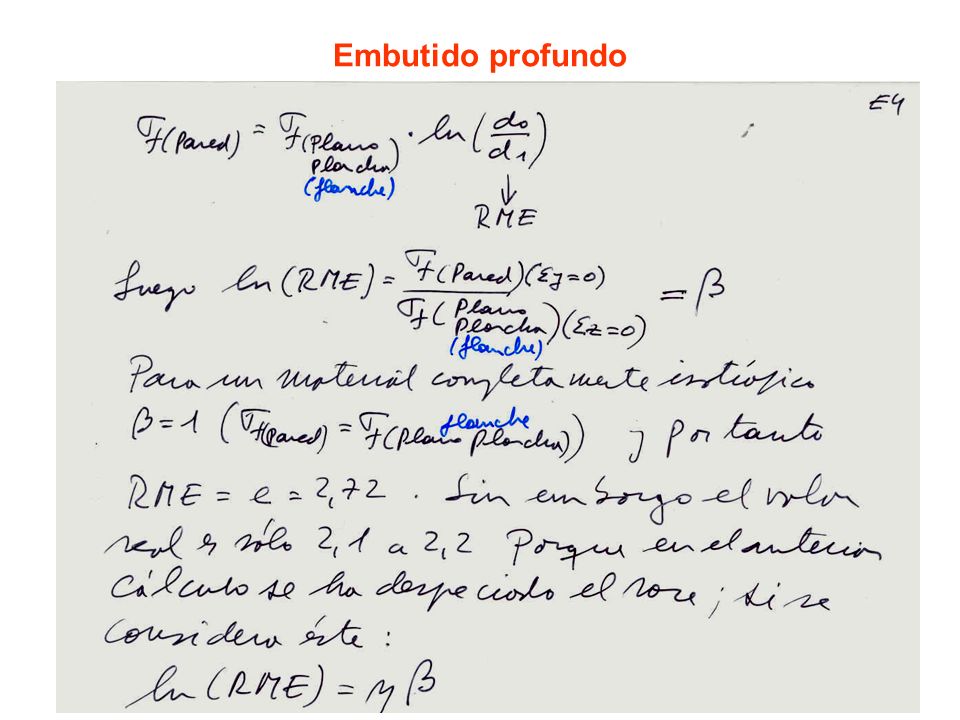 Embutido profundo
E4
σf(Pared) = σf(Plano Plancha) · ln(do/d1)
(flanche)
↓
RME
Luego ln(RME) = σf(Pared)(εy=0) / σf(Plano Plancha)(εz=0) = β
(flanche)
Para un material completamente isotrópico
flanche
β=1 (σf(Pared) = σf(Plano Plancha)) y por tanto
RME = e = 2,72. Sin embargo el valor
real es sólo 2,1 a 2,2 Porque en el anterior
cálculo se ha despeciado el roce; si se
considera éste:
ln(RME) = η β